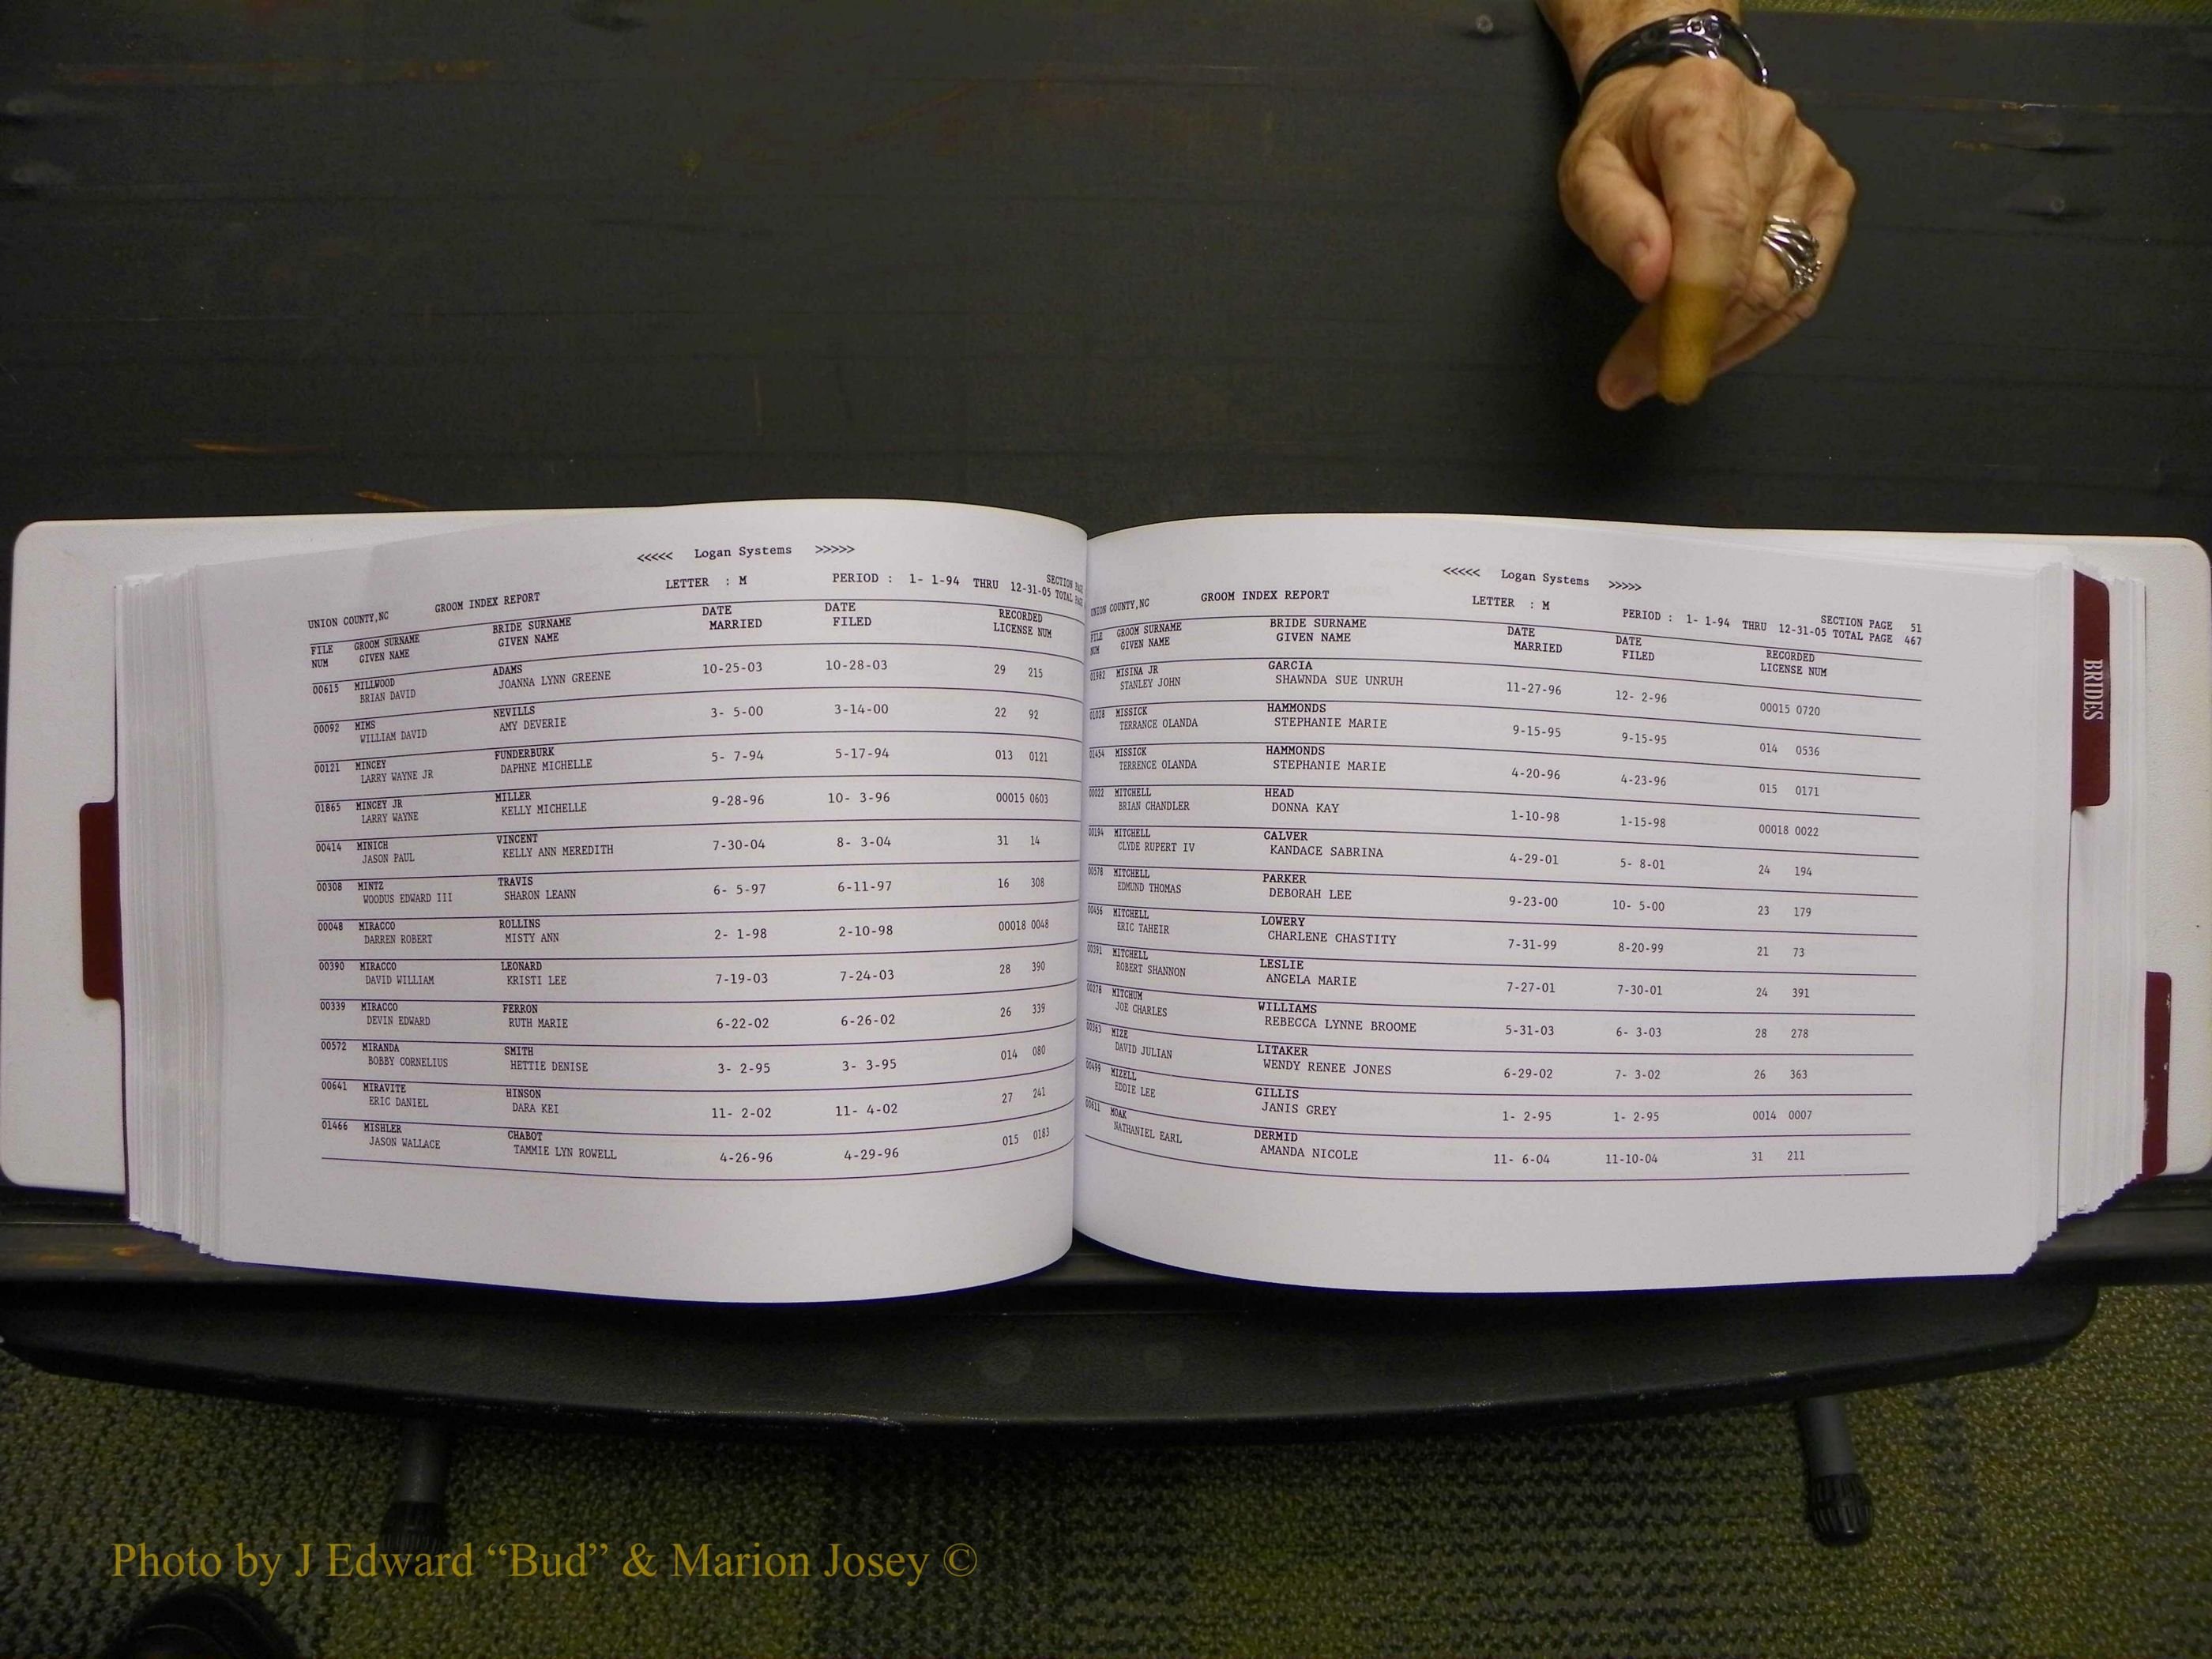 <<<<< Logan Systems >>>>>
LETTER : M PERIOD : 1- 1-94 THRU 12-31-05 SECTION
TOTAL
UNION COUNTY,NC GROOM INDEX REPORT
FILE GROOM SURNAME BRIDE SURNAME DATE DATE RECORDED
NUM GIVEN NAME GIVEN NAME MARRIED FILED LICENSE NUM
00615 MILLWOOD ADAMS 10-25-03 10-28-03 29 215
BRIAN DAVID JOANNA LYNN GREENE
00092 MIMS NEVILLS 3- 5-00 3-14-00 22 92
WILLIAM DAVID AMY DEVERIE
00121 MINCEY FUNDERBURK 5- 7-94 5-17-94 013 0121
LARRY WAYNE JR DAPHNE MICHELLE
01865 MINCEY JR MILLER 9-28-96 10- 3-96 00015 0603
LARRY WAYNE KELLY MICHELLE
00414 MINICH VINCENT 7-30-04 8- 3-04 31 14
JASON PAUL KELLY ANN MEREDITH
00308 MINTZ TRAVIS 6- 5-97 6-11-97 16 308
WOODUS EDWARD III SHARON LEANN
00048 MIRACCO ROLLINS 2- 1-98 2-10-98 00018 0048
DARREN ROBERT MISTY ANN
00390 MIRACCO LEONARD 7-19-03 7-24-03 28 390
DAVID WILLIAM KRISTI LEE
00339 MIRACCO FERRON 6-22-02 6-26-02 26 339
DEVIN EDWARD RUTH MARIE
00572 MIRANDA SMITH 3- 2-95 3- 3-95 014 080
BOBBY CORNELIUS HETTIE DENISE
00641 MIRAVITE HINSON 11- 2-02 11- 4-02 27 241
ERIC DANIEL DARA KEI
01466 MISHLER CHABOT 4-26-96 4-29-96 015 0183
JASON WALLACE TAMMIE LYN ROWELL
<<<<< Logan Systems >>>>>
UNION COUNTY,NC GROOM INDEX REPORT LETTER : M PERIOD : 1- 1-94 THRU 12-31-05 SECTION PAGE 51
TOTAL PAGE 467
FILE GROOM SURNAME BRIDE SURNAME DATE DATE RECORDED
NUM GIVEN NAME GIVEN NAME MARRIED FILED LICENSE NUM
01982 MISINA JR GARCIA 11-27-96 12- 2-96 00015 0720
STANLEY JOHN SHAWNDA SUE UNRUH
01028 MISSICK HAMMONDS 9-15-95 9-15-95 014 0536
TERRANCE OLANDA STEPHANIE MARIE
01454 MISSICK HAMMONDS 4-20-96 4-23-96 015 0171
TERRENCE OLANDA STEPHANIE MARIE
00022 MITCHELL HEAD 1-10-98 1-15-98 00018 0022
BRIAN CHANDLER DONNA KAY
00194 MITCHELL CALVER 4-29-01 5- 8-01 24 194
CLYDE RUPERT IV KANDACE SABRINA
00578 MITCHELL PARKER 9-23-00 10- 5-00 23 179
EDMUND THOMAS DEBORAH LEE
00456 MITCHELL LOWERY 7-31-99 8-20-99 21 73
ERIC TAHEIR CHARLENE CHASTITY
00391 MITCHELL LESLIE 7-27-01 7-30-01 24 391
ROBERT SHANNON ANGELA MARIE
00278 MITCHUM WILLIAMS 5-31-03 6- 3-03 28 278
JOE CHARLES REBECCA LYNNE BROOME
00363 MIZE LITAKER 6-29-02 7- 3-02 26 363
DAVID JULIAN WENDY RENEE JONES
00499 MIZELL GILLIS 1- 2-95 1- 2-95 0014 0007
EDDIE LEE JANIS GREY
00611 MOAK DERMID 11- 6-04 11-10-04 31 211
NATHANIEL EARL AMANDA NICOLE
BRIDES
Photo by J Edward “Bud” & Marion Josey ©